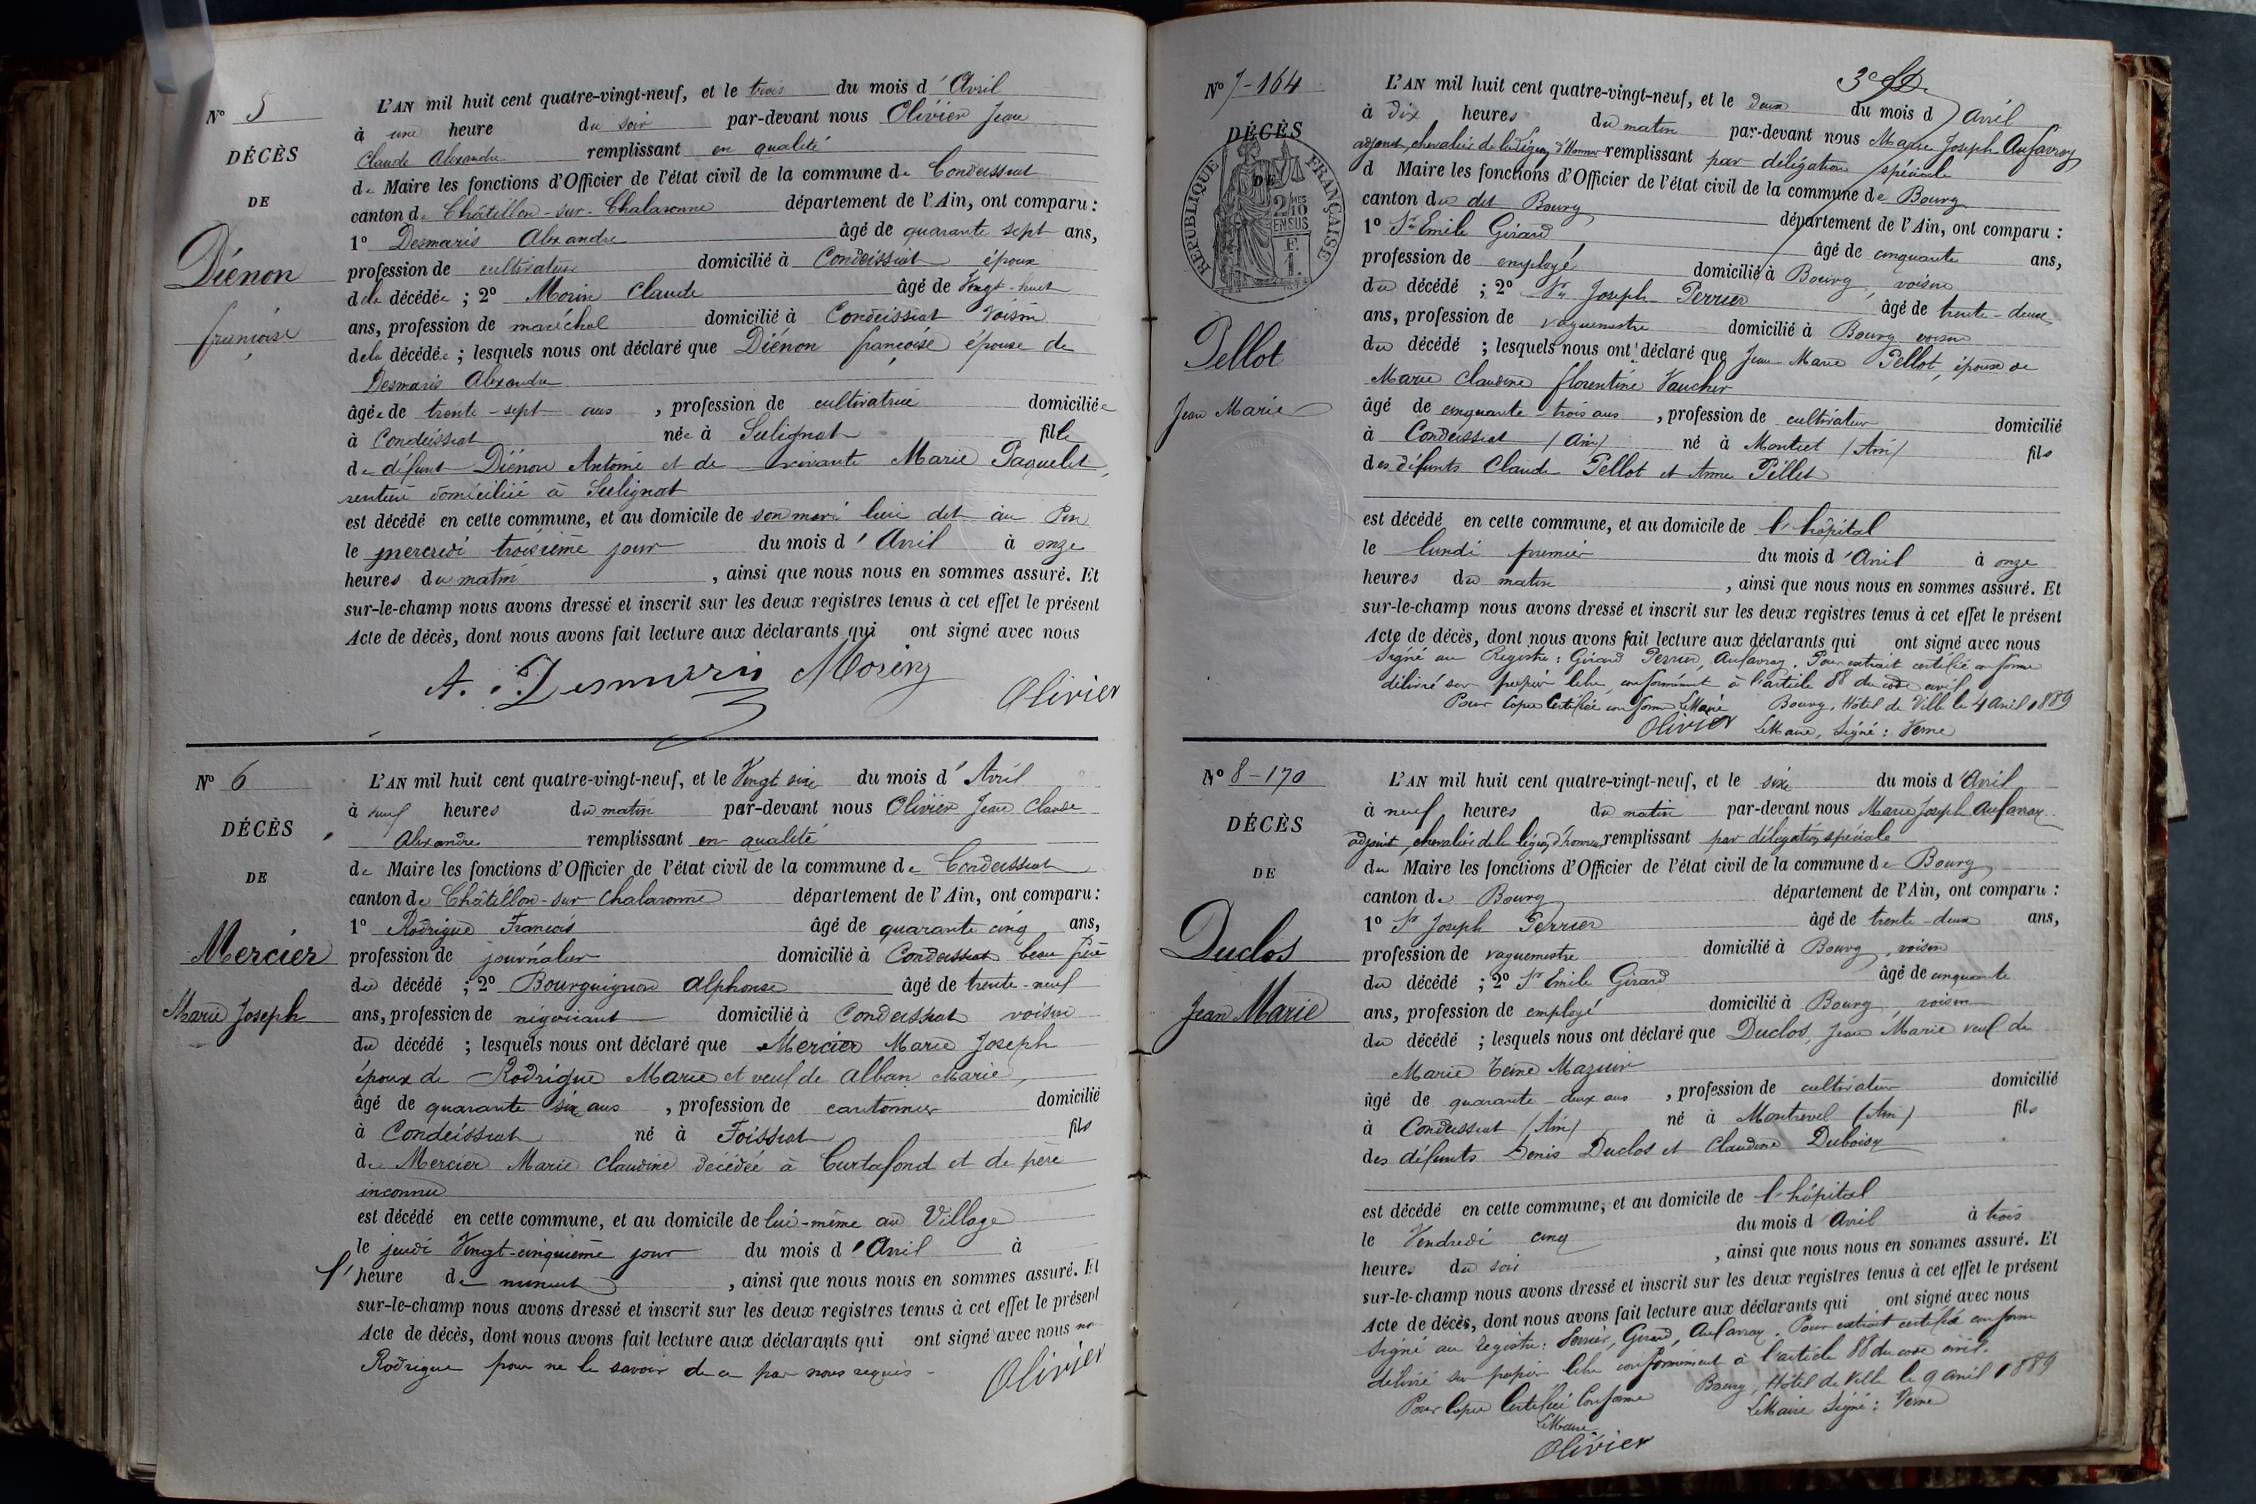 N° 5
DÉCÈS
DE
Diénon
françoise
L'AN mil huit cent quatre-vingt-neuf, et le trois du mois d'Avril
à une heure du soir par-devant nous Olivier Jean
Claude Alexandre remplissant en qualité
de Maire les fonctions d'Officier de l'état civil de la commune de Condeissiat
canton de Châtillon-sur-Chalaronne département de l'Ain, ont comparu :
1° Desmaris Alexandre âgé de quarante sept ans,
profession de cultivateur domicilié à Condeissiat époux
dela décédée ; 2° Morin Claude âgé de Vingt-huit
ans, profession de maréchal domicilié à Condeissiat voisin
dela décédée ; lesquels nous ont déclaré que Diénon françoise épouse de
Desmaris Alexandre
âgée de trente-sept ans, profession de cultivatrice domiciliée
à Condeissiat née à Sulignat fille
de défunt Diénon Antoine et de vivante Marie Paquelet,
rentière domiciliée à Sulignat
est décédé en cette commune, et au domicile de son mari lieu dit au Pin
le mercredi troisième jour du mois d'Avril à onze
heures du matin, ainsi que nous nous en sommes assuré. Et
sur-le-champ nous avons dressé et inscrit sur les deux registres tenus à cet effet le présent
Acte de décès, dont nous avons fait lecture aux déclarants qui ont signé avec nous
A. Desmaris Morin
Olivier
N° 6
DÉCÈS
DE
Mercier
Marie Joseph
L'AN mil huit cent quatre-vingt-neuf, et le Vingt six du mois d'Avril
à neuf heures du matin par-devant nous Olivier Jean Claude
Alexandre remplissant en qualité
de Maire les fonctions d'Officier de l'état civil de la commune de Condeissiat
canton de Châtillon-sur-Chalaronne département de l'Ain, ont comparu :
1° Rodrigue François âgé de quarante cinq ans,
profession de journalier domicilié à Condeissiat beau frère
du décédé ; 2° Bourguignon Alphonse âgé de trente-neuf
ans, profession de négociant domicilié à Condeissiat voisin
du décédé ; lesquels nous ont déclaré que Mercier Marie Joseph
époux de Rodrigue Marie et veuf de Alban Marie,
âgé de quarante six ans, profession de cantonnier domicilié
à Condeissiat né à Foissiat fils
de Mercier Marie Claudine décédée à Curtafond et de père
inconnu
est décédé en cette commune, et au domicile de lui-même au Village
le jeudi Vingt-cinquième jour du mois d'Avril à
l'heure de minuit, ainsi que nous nous en sommes assuré. Et
sur-le-champ nous avons dressé et inscrit sur les deux registres tenus à cet effet le présent
Acte de décès, dont nous avons fait lecture aux déclarants qui ont signé avec nous non
Rodrigue pour ne le savoir de ce par nous requis.
Olivier
N° 7-164
DÉCÈS
DE
RÉPUBLIQUE FRANÇAISE
2/10
EN SUS
F.
1.
Pellot
Jean Marie
L'AN mil huit cent quatre-vingt-neuf, et le deux du mois d'avril
à dix heures du matin par-devant nous Marie Joseph Aufavray
adjoint, chevalier de la Légion d'Honneur remplissant par délégation spéciale
d Maire les fonctions d'Officier de l'état civil de la commune de Bourg
canton du dit Bourg département de l'Ain, ont comparu :
1° Sr Emile Girard âgé de cinquante ans,
profession de employé domicilié à Bourg, voisin
du décédé ; 2° Sr Joseph Perrier âgé de trente-deux
ans, profession de vaguemestre domicilié à Bourg voisin
du décédé ; lesquels nous ont déclaré que Jean Marie Pellot, époux de
Marie Claudine florentine Vaucher
âgé de cinquante-trois ans, profession de cultivateur domicilié
à Condeissiat (Ain) né à Montcet (Ain) fils
des défunts Claude Pellot et Anne Pillet
est décédé en cette commune, et au domicile de l'hôpital
le lundi premier du mois d'Avril à onze
heures du matin, ainsi que nous nous en sommes assuré. Et
sur-le-champ nous avons dressé et inscrit sur les deux registres tenus à cet effet le présent
Acte de décès, dont nous avons fait lecture aux déclarants qui ont signé avec nous
Signé au Registre : Girard Perrier, Aufavray. Pour extrait certifié conforme
délivré sur papier libre conformément à l'article 88 du code civil
Pour Copie Certifiée conforme Le Maire Bourg, Hôtel de Ville le 4 Avril 1889
Olivier Le Maire, Signé : Verne
N° 8-170
DÉCÈS
DE
Duclos
Jean Marie
L'AN mil huit cent quatre-vingt-neuf, et le six du mois d'Avril
à neuf heures du matin par-devant nous Marie Joseph Aufavray
adjoint, chevalier de la légion d'honneur, remplissant par délégation spéciale
du Maire les fonctions d'Officier de l'état civil de la commune de Bourg
canton de Bourg département de l'Ain, ont comparu :
1° Sr Joseph Perrier âgé de trente-deux ans,
profession de vaguemestre domicilié à Bourg, voisin
du décédé ; 2° Sr Emile Girard âgé de cinquante
ans, profession de employé domicilié à Bourg, voisin
du décédé ; lesquels nous ont déclaré que Duclos, Jean Marie veuf de
Marie Mazuir
âgé de quarante-deux ans, profession de cultivateur domicilié
à Condeissiat (Ain) né à Montrevel (Ain) fils
des défunts Denis Duclos et Claudine Duboisy
est décédé en cette commune, et au domicile de l'hôpital
le Vendredi cinq du mois d'Avril à trois
heures du soir, ainsi que nous nous en sommes assuré. Et
sur-le-champ nous avons dressé et inscrit sur les deux registres tenus à cet effet le présent
Acte de décès, dont nous avons fait lecture aux déclarants qui ont signé avec nous
Signé au registre : Perrier, Girard, Aufavray. Pour extrait certifié conforme
délivré sur papier libre conformément à l'article 88 du code civil.
Bourg, Hôtel de Ville le 9 avril 1889
Pour Copie Certifiée Conforme Le Maire Signé : Verne
Le Maire
Olivier